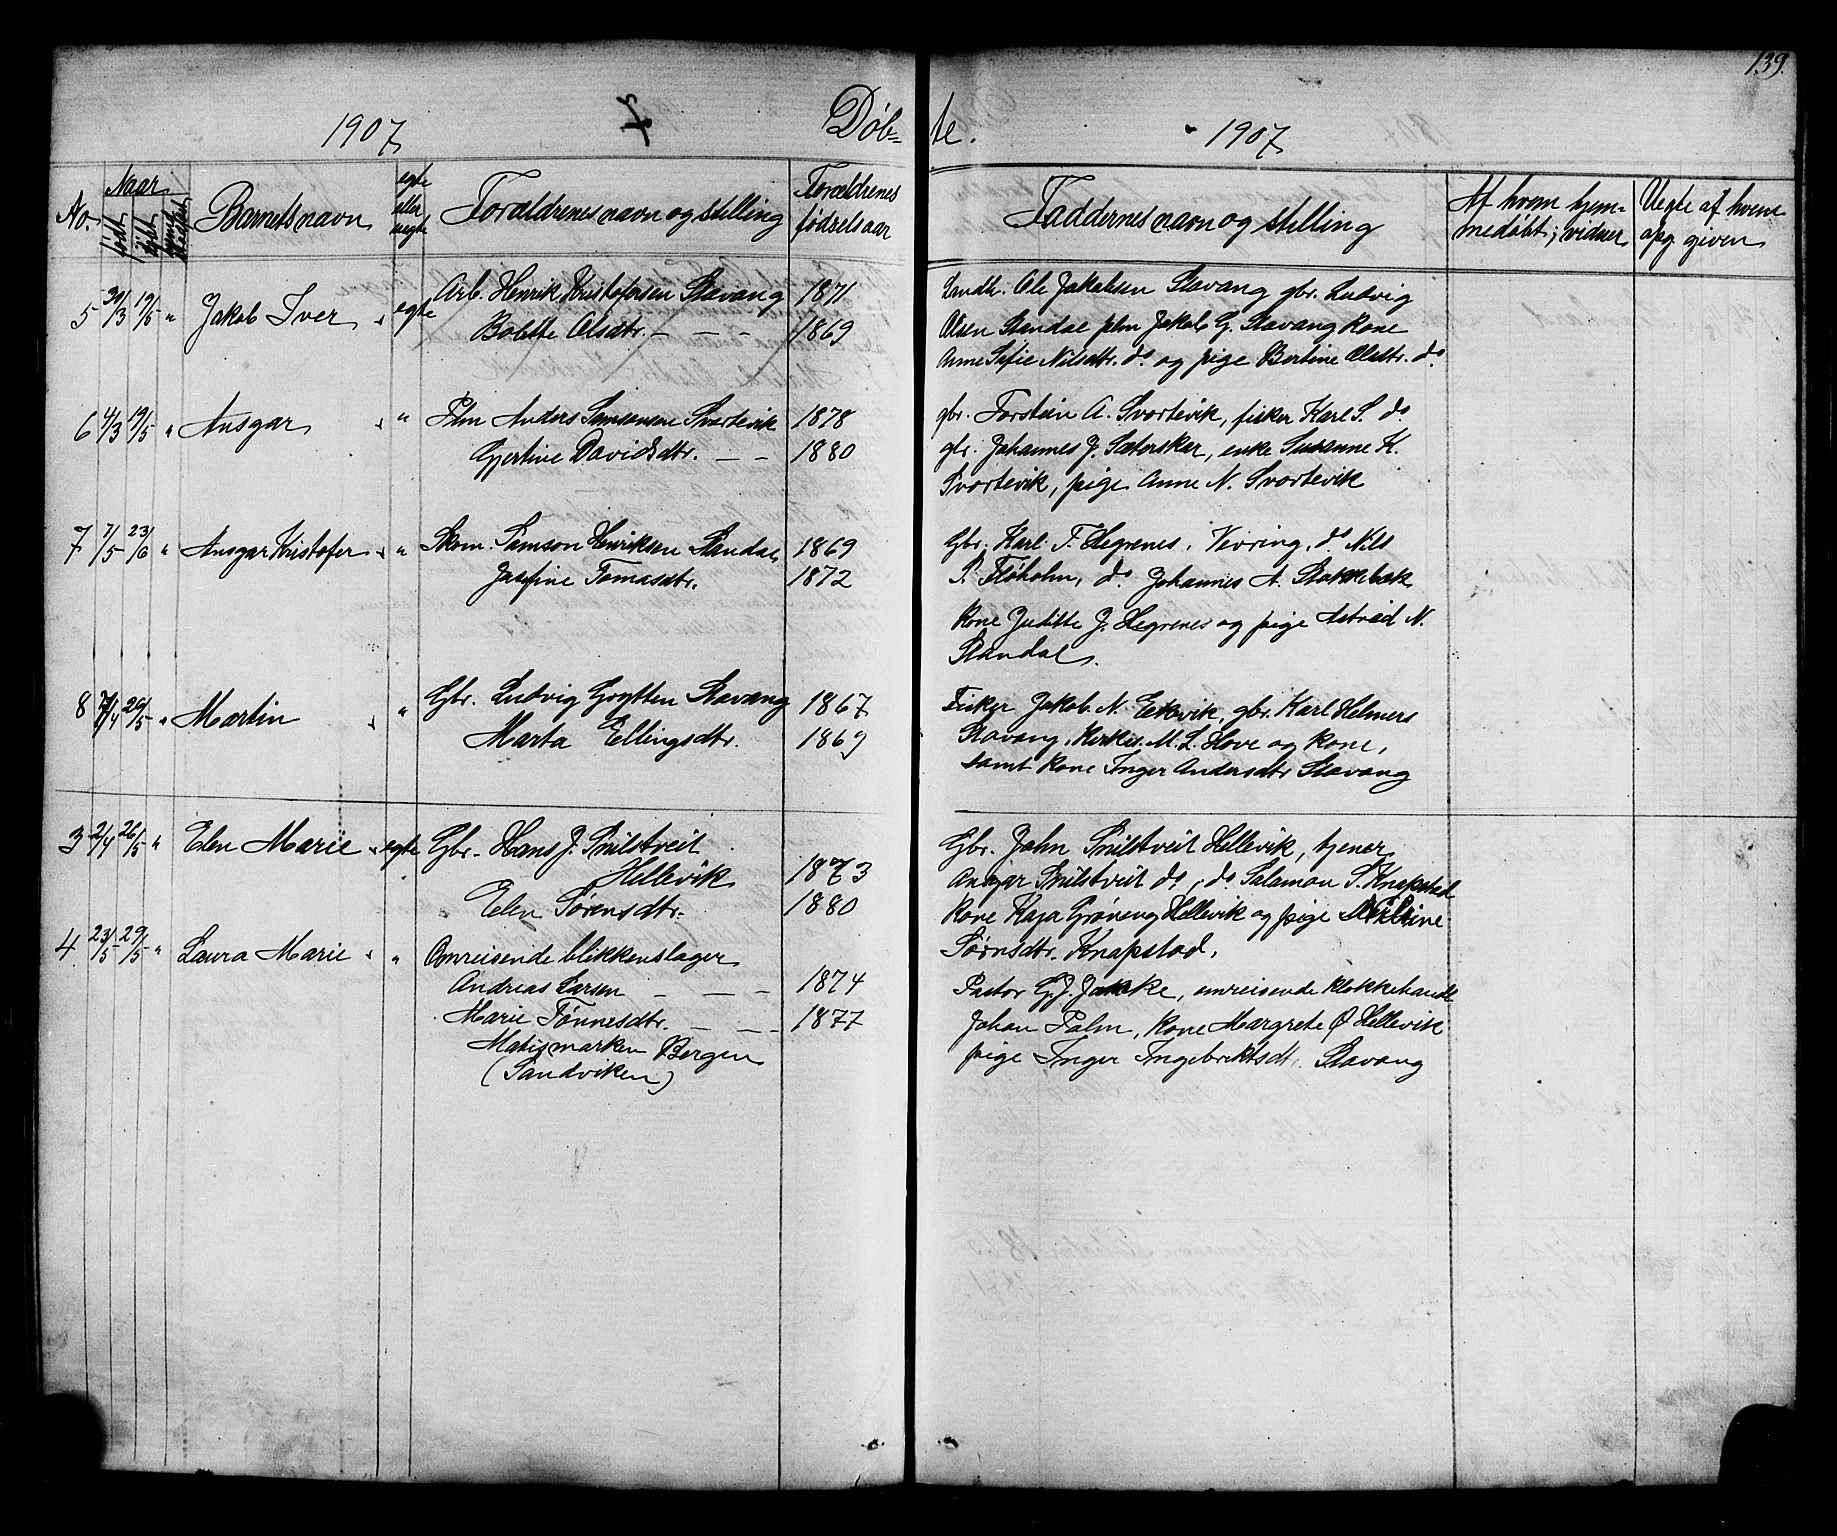 139.
1907 7 Døb=
te. 1907
No. Naar født døbt Barnets navn egte eller uegte Forældrenes navn og stilling Forældrenes fødselsaar
Faddernes navn og stilling Af hvem hjem-
medøbt; vidner Uegte af hvem
opg. given
5 30/3 19/5 " Jakob Iver egte Arb. Henrik Kristofersen Stavang 1871
Bolette Olsdtr. — — — 1869
Landh. Ole Jakobsen Stavang gbr. Ludvig
Olsen Standal plm Jakob G. Stavang Kone
Anne Sofie Nilsdtr. do og pige Bertine Olsdtr. do
6 4/3 19/5 " Ansgar " Plm Anders Samsonsen Svortevik 1878
Gjertine Davidsdtr. — — 1880
gbr. Torstein A. Svortevik, fisker Karl S. do
gbr. Johannes J. Sæterskar, enke Susanne K.
Svortevik, pige Anne N. Svortevik
7 7/5 23/6 " Ansgar Kristofer " Skom. Samson Henriksen Standal 1869
Josefine Tomasdtr. 1872
Gbr. Karl T. Hegrenes, Vevring, do Nils
P. Fløholm, do Johannes A. Stokkebæk
Kone Juditte J. Hegrenes og pige Astrid N.
Standal.
8 /4 29/5 " Martin " Gbr. Ludvig Gogtten Stavang 1867
Marta Ellingsdtr. 1869
Fisker Jakob N. Eikevik, gbr. Karl Helmers
Stavang, Kirkes. M. L. Hove og Kone,
samt Kone Inger Andersdtr Stavang
3 2/4 26/5 " Elen Marie egte Gbr. Hans J. Smilstveit
Hellevik 1873
Elen Sørensdtr. 1880
Gbr. John Smilstveit Hellevik, tjener
Ansgar Smilstveit do, do Salamon S. Knapstad
Kone Kaja Grøneng Hellevik og pige Nilsine
Sørnsdtr. Knapstad.
4 23/5 29/5 " Laura Marie " Omreisende blikkenslager
Andreas Larsen — — — 1874
Marie Tønnesdtr. — — — 1877
Matismarken Bergen
(Sandviken)
Pastor G. J. Jakke, omreisende klokkehandl
Johan Palm, Kone Margrete Ø Hellevik
pige Inger Ingebriktsdt. Stavang